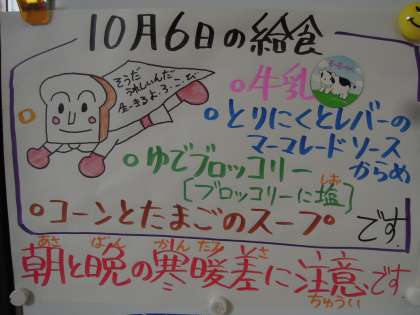 10月6日の給食
牛乳
とりにくとレバーの
マーマレードソース
からめ
ゆでブロッコリー
[ブロッコリーに塩]
しお
コーンとたまごのスープ
です
朝と晩の寒暖差に注意です
あさ ばん かん だん さ ちゅうい